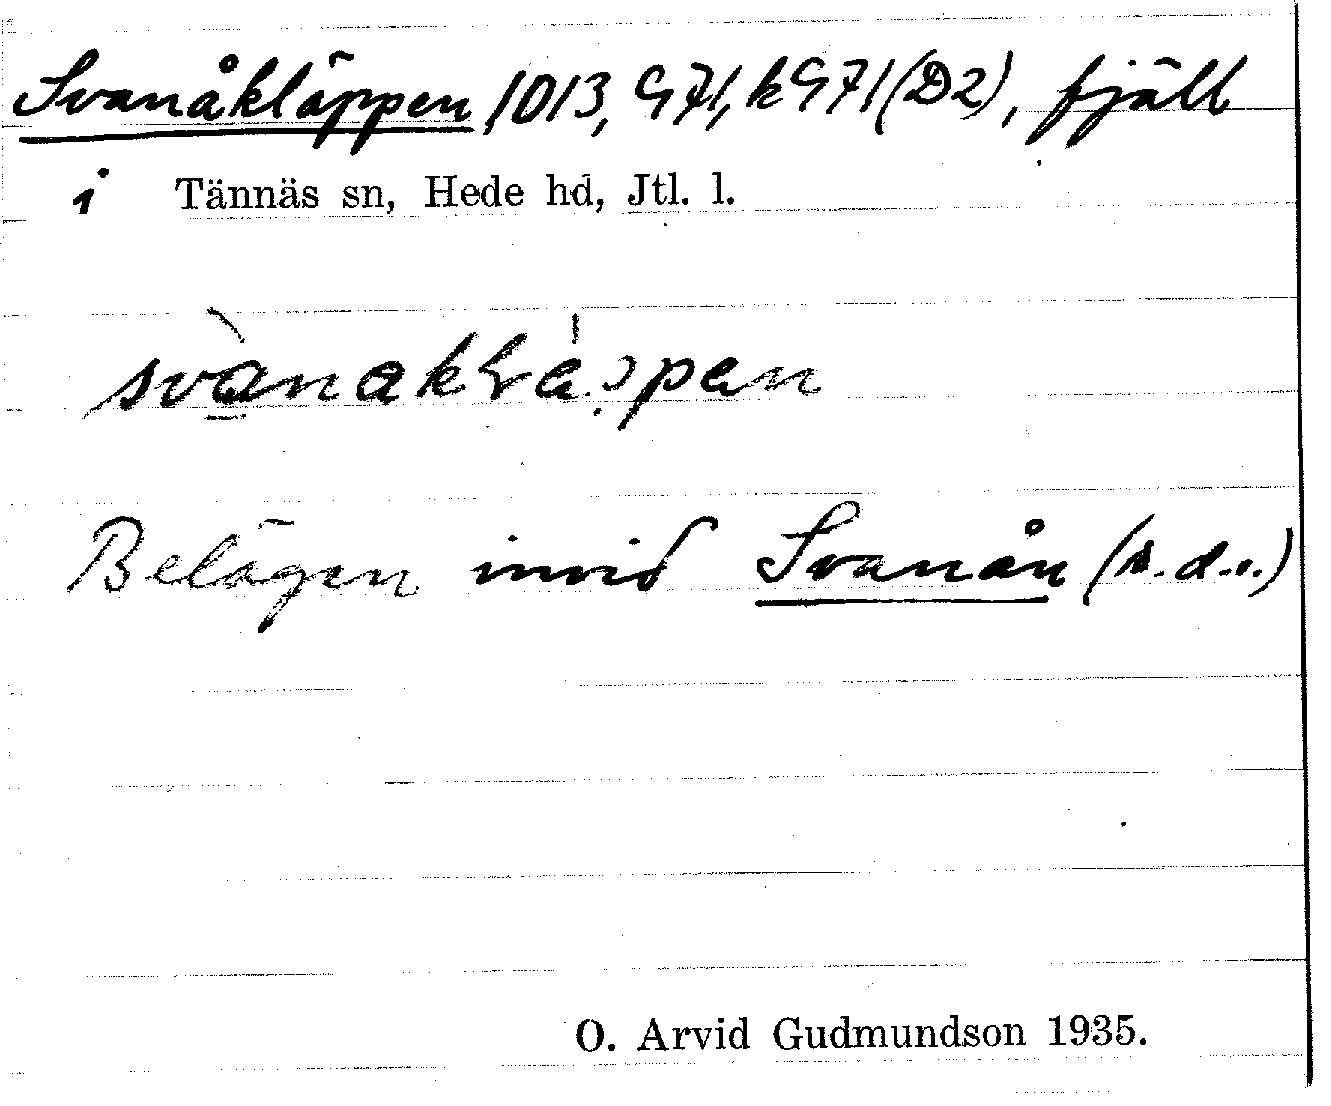 Svanåkläppen 1013, G71, kG71 (D2), fjäll
i Tännäs sn, Hede hd, Jtl. l.
Belägen invid Svanån (s.d.o.)
O. Arvid Gudmundson 1935.